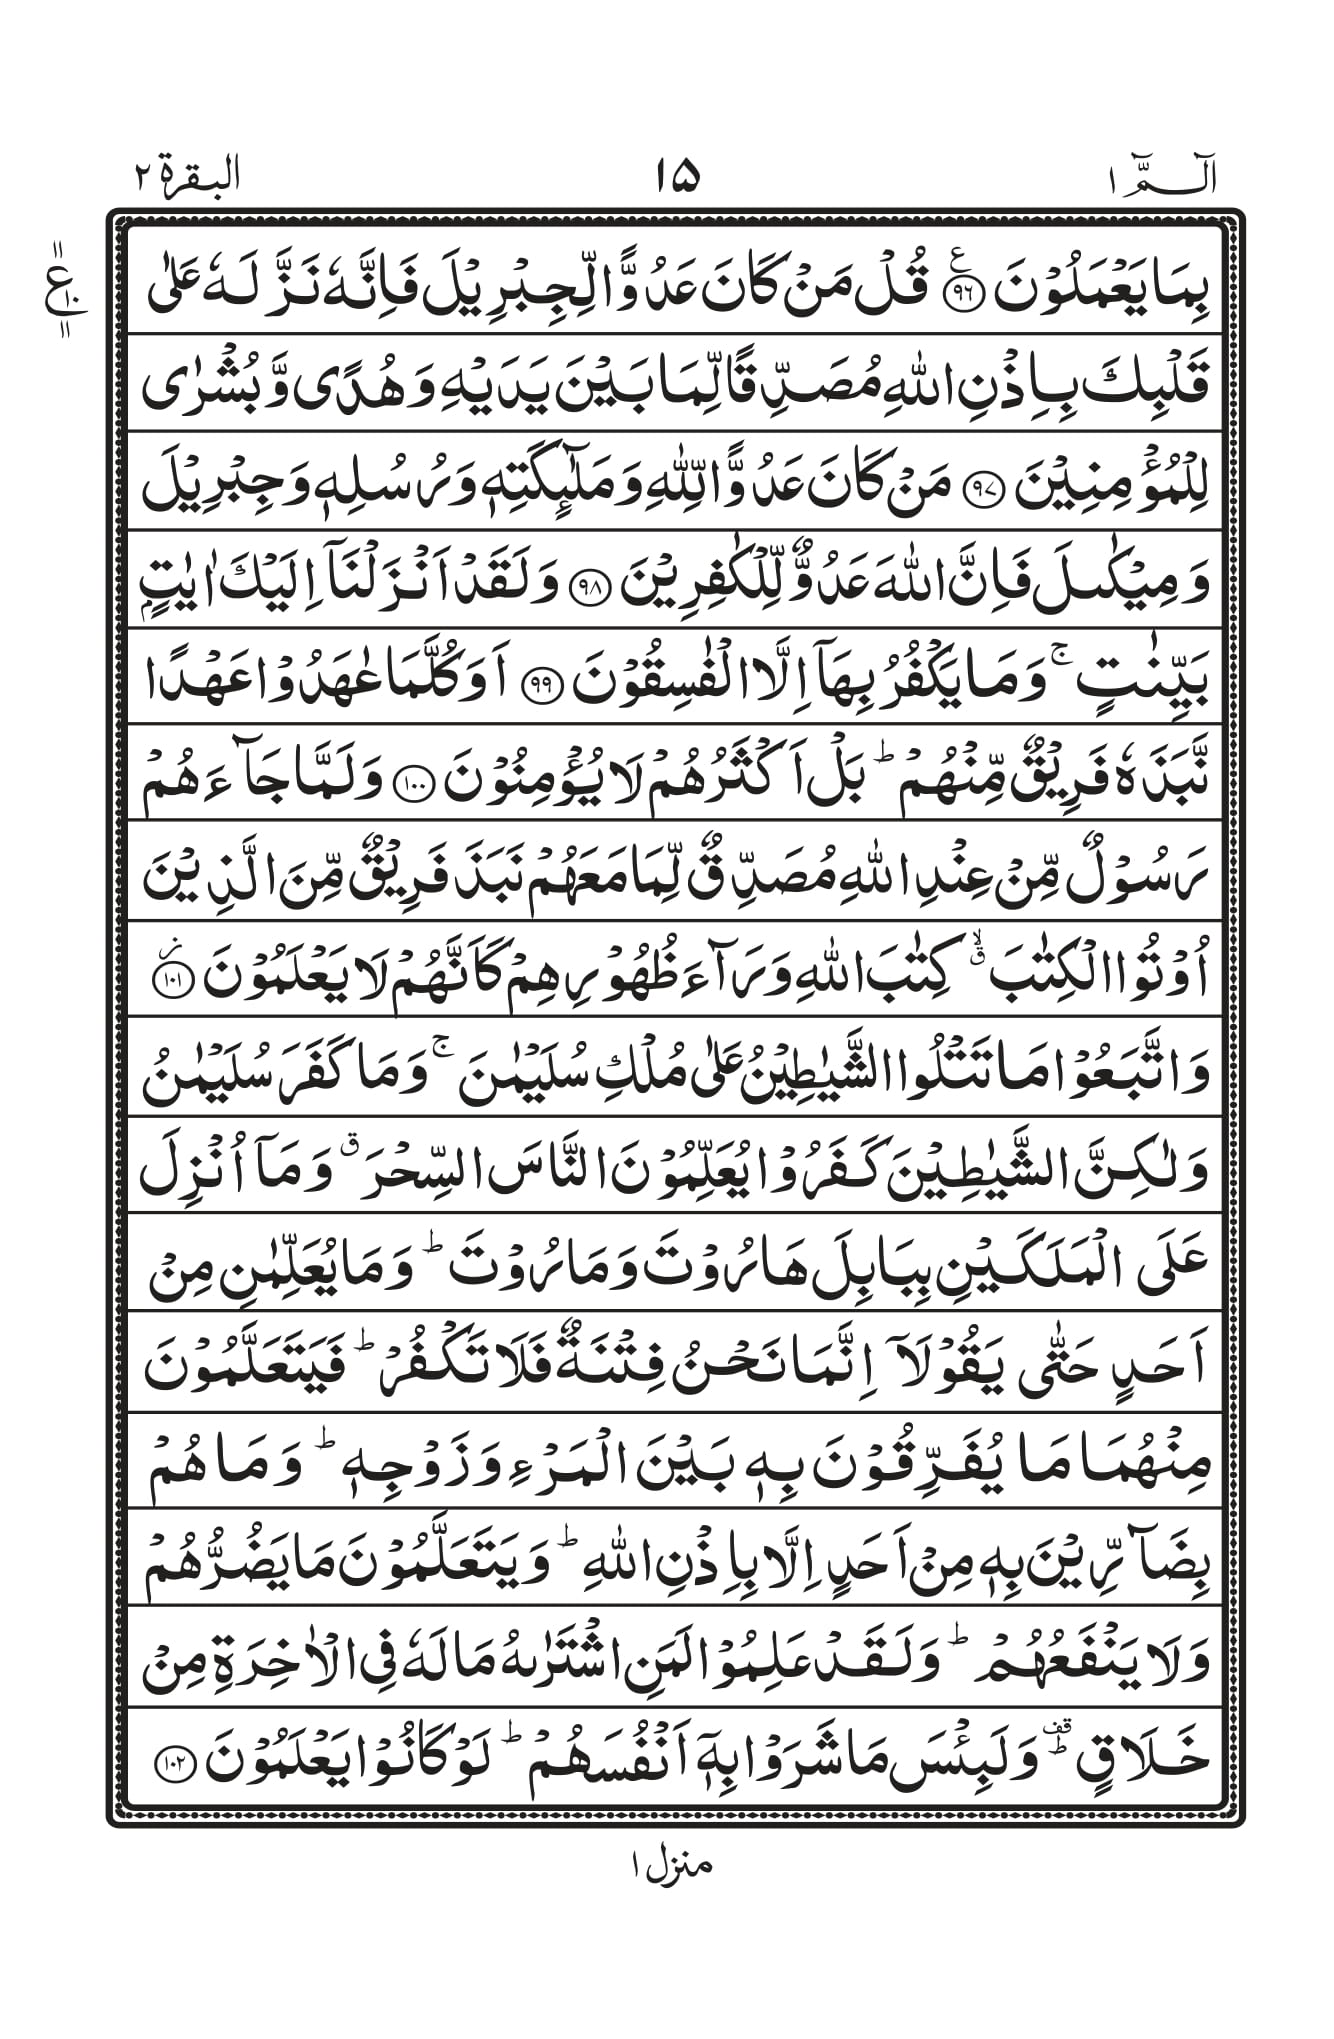 الٓـمّٓ ١
١٥
البقرة ٢
بِمَا يَعْمَلُوْنَ ۧ‏﴿۹۶﴾ قُلْ مَنْ كَانَ عَدُوًّا لِّجِبْرِيْلَ فَاِنَّهٗ نَزَّلَهٗ عَلٰى
ع ١٠ ١١ ١١
قَلْبِكَ بِاِذْنِ اللّٰهِ مُصَدِّقًا لِّمَا بَيْنَ يَدَيْهِ وَهُدًى وَّبُشْرٰى
لِلْمُؤْمِنِيْنَ ﴿۹۷﴾ مَنْ كَانَ عَدُوًّا لِّلّٰهِ وَمَلٰٓئِكَتِهٖ وَرُسُلِهٖ وَجِبْرِيْلَ
وَمِيْكٰىلَ فَاِنَّ اللّٰهَ عَدُوٌّ لِّلْكٰفِرِيْنَ ﴿۹۸﴾ وَلَقَدْ اَنْزَلْنَآ اِلَيْكَ اٰيٰتٍۭ
بَيِّنٰتٍ ۚ وَمَا يَكْفُرُ بِهَآ اِلَّا الْفٰسِقُوْنَ ﴿۹۹﴾ اَوَكُلَّمَا عٰهَدُوْا عَهْدًا
نَّبَذَهٗ فَرِيْقٌ مِّنْهُمْ ؕ بَلْ اَكْثَرُهُمْ لَا يُؤْمِنُوْنَ ﴿۱۰۰﴾ وَلَمَّا جَآءَهُمْ
رَسُوْلٌ مِّنْ عِنْدِ اللّٰهِ مُصَدِّقٌ لِّمَا مَعَهُمْ نَبَذَ فَرِيْقٌ مِّنَ الَّذِيْنَ
اُوْتُوا الْكِتٰبَ ۙۗ كِتٰبَ اللّٰهِ وَرَآءَ ظُهُوْرِهِمْ كَاَنَّهُمْ لَا يَعْلَمُوْنَ ؗ‏﴿۱۰۱﴾
وَاتَّبَعُوْا مَا تَتْلُوا الشَّيٰطِيْنُ عَلٰى مُلْكِ سُلَيْمٰنَ ۚ وَمَا كَفَرَ سُلَيْمٰنُ
وَلٰكِنَّ الشَّيٰطِيْنَ كَفَرُوْا يُعَلِّمُوْنَ النَّاسَ السِّحْرَ ۗ وَمَآ اُنْزِلَ
عَلَى الْمَلَكَيْنِ بِبَابِلَ هَارُوْتَ وَمَارُوْتَ ؕ وَمَا يُعَلِّمٰنِ مِنْ
اَحَدٍ حَتّٰى يَقُوْلَآ اِنَّمَا نَحْنُ فِتْنَةٌ فَلَا تَكْفُرْ ؕ فَيَتَعَلَّمُوْنَ
مِنْهُمَا مَا يُفَرِّقُوْنَ بِهٖ بَيْنَ الْمَرْءِ وَزَوْجِهٖ ؕ وَمَا هُمْ
بِضَآرِّيْنَ بِهٖ مِنْ اَحَدٍ اِلَّا بِاِذْنِ اللّٰهِ ؕ وَيَتَعَلَّمُوْنَ مَا يَضُرُّهُمْ
وَلَا يَنْفَعُهُمْ ؕ وَلَقَدْ عَلِمُوْا لَمَنِ اشْتَرٰىهُ مَا لَهٗ فِى الْاٰخِرَةِ مِنْ
خَلَاقٍ ؕ قف وَلَبِئْسَ مَا شَرَوْا بِهٖٓ اَنْفُسَهُمْ ؕ لَوْ كَانُوْا يَعْلَمُوْنَ ﴿۱۰۲﴾
منزل ١